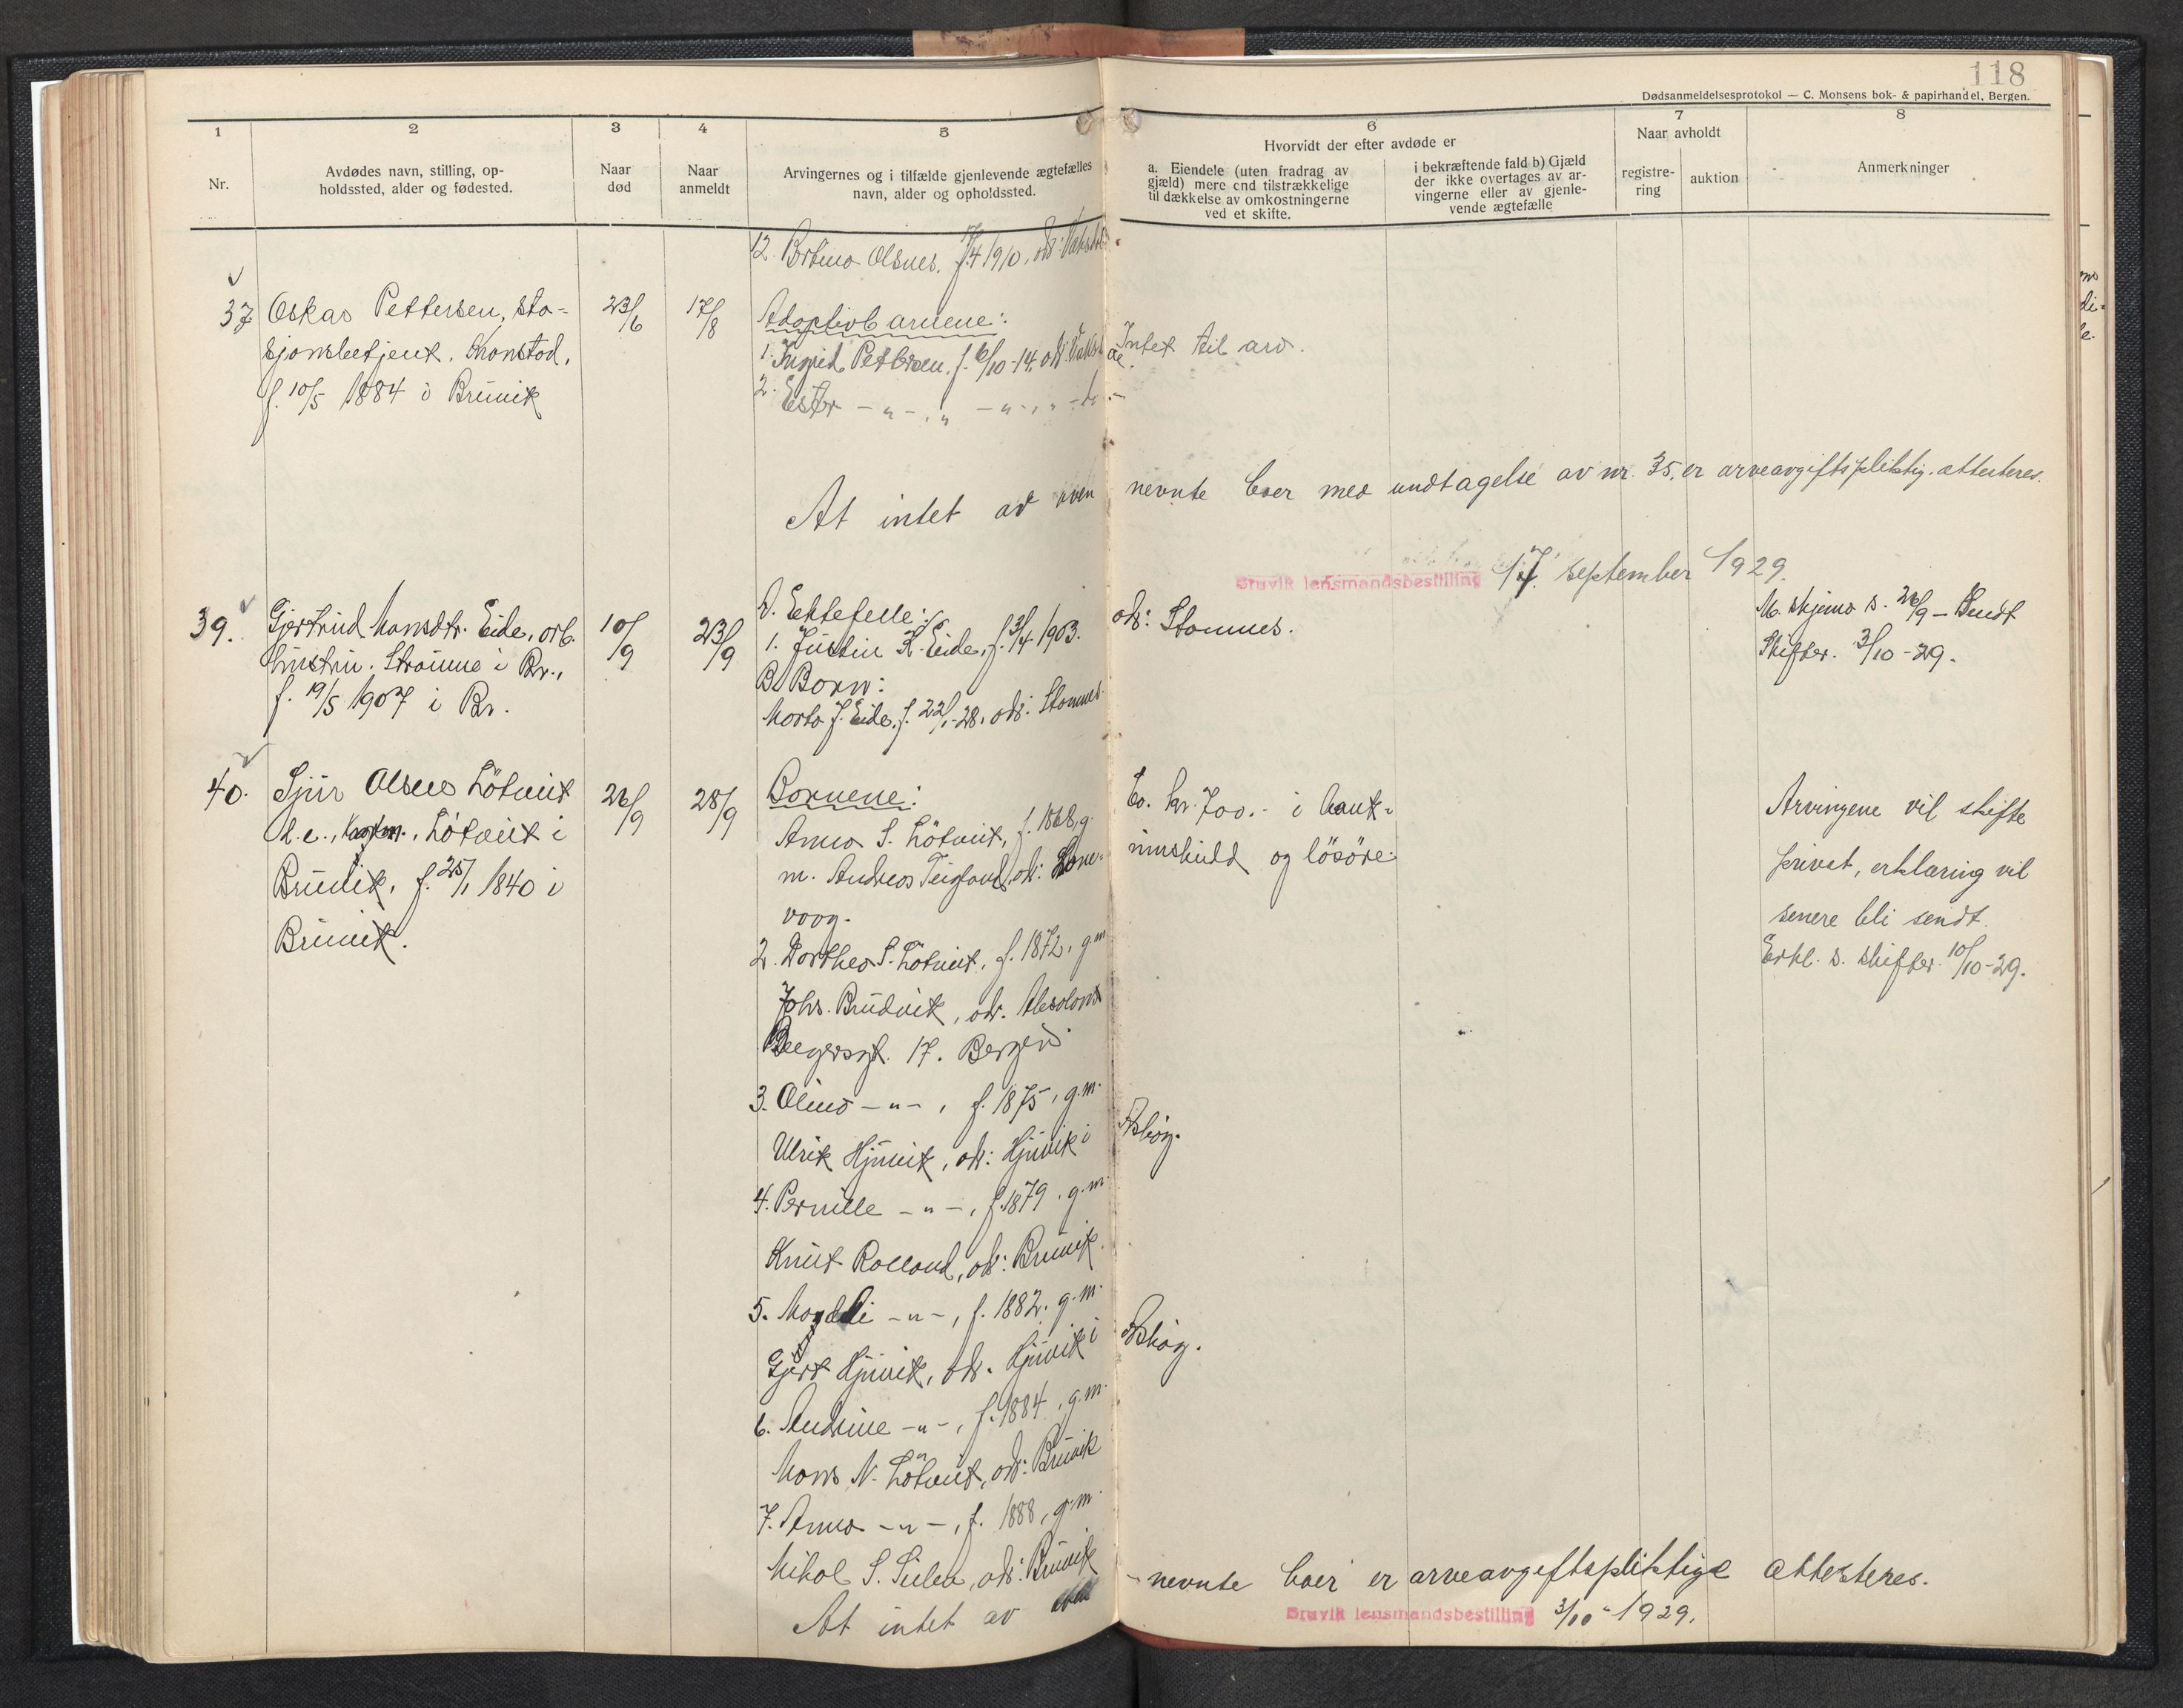 118
Dødsanmeldelsesprotokol — C. Mohsens bok- & papirhandel, Bergen.
1
2
3
4
5
6
7
8
Nr.
Avdødes navn, stilling, op-
holdssted, alder og fødested.
Naar
død
Naar
anmeldt
Arvingernes og i tilfælde gjenlevende ægtefælles
navn, alder og opholdssted.
Hvorvidt der efter avdøde er
a. Eiendele (uten fradrag av
gjæld) mere end tilstrækkelige
til dækkelse av omkostningerne
ved et skifte.
i bekræftende fald b) Gjæld
der ikke overtages av ar-
vingerne eller av gjenle-
vende ægtefælle
Naar avholdt
registre-
ring
auktion
Anmerkninger
12. Olsnes, f. 1910, adr:
37 Oskar Pettersen, sta-
sjonsbetjent,
f. 10/5 1884 i Bruvik
23/6
17/8
Adoptivbarnene:
1. Ingrid Pettersen, f. 6/10-14, adr:
2. Ester -"-, " -"-, "
Intet til arv.
At intet av oven nevnte boer med undtagelse av nr. 35, er arveavgiftspliktig, attesteres.
Bruvik lensmandsbestilling 17. september 1929.
39. Gjertrud Monsdtr. Eide, arb.
hustru. Stamnes i Br.,
f. 19/5 1907 i Br.
10/9
23/9
A. Ektefelle:
1. Justin K. Eide, f. 3/4 1903. adr: Stamnes.
B. Barn:
Marta J. Eide, f. 22/1-28, adr: Stamnes
M. skjema s. 26/9 - Sendt
Skifter. 3/10-29.
40. Sjur Olsen Lötveit
k.e., Lötveit i
Bruvik, f. 25/1 1840 i
Bruvik.
26/9
28/9
Barnene:
Anna S. Lötveit, f. 1868, g.
m. Andreas Teigland, adr: Lone-
vaag.
2. Dorthea S. Lötveit, f. 1872, g.m.
Johs. Bruvik, adr. Absalons
Beyersgt. 17. Bergen
3. Olina -"-, f. 1875, g.m.
Ulrik Hjuvik, adr: Hjuvik i Askøy.
4. Pernille -"-, f. 1879, g.m.
Knut Rolland, adr: Bruvik.
5. Magdli -"-, f. 1882, g.m.
Gjert Hjuvik, adr. Hjuvik i Askøy.
6. Andrine -"-, f. 1884, g.m.
Mons N. Lötveit, adr: Bruvik
7. Anna -"-, f. 1888, g.m.
Mikal S. adr: Bruvik
Ca. kr. 700.- i bank-
innskudd og lösöre.
Arvingene vil skifte
privat, erklæring vil
senere bli sendt.
Erkl. s. skifter. 10/10-29.
At intet av oven- nevnte boer er arveavgiftspliktige attesteres.
Bruvik lensmandsbestilling 3/10-1929.